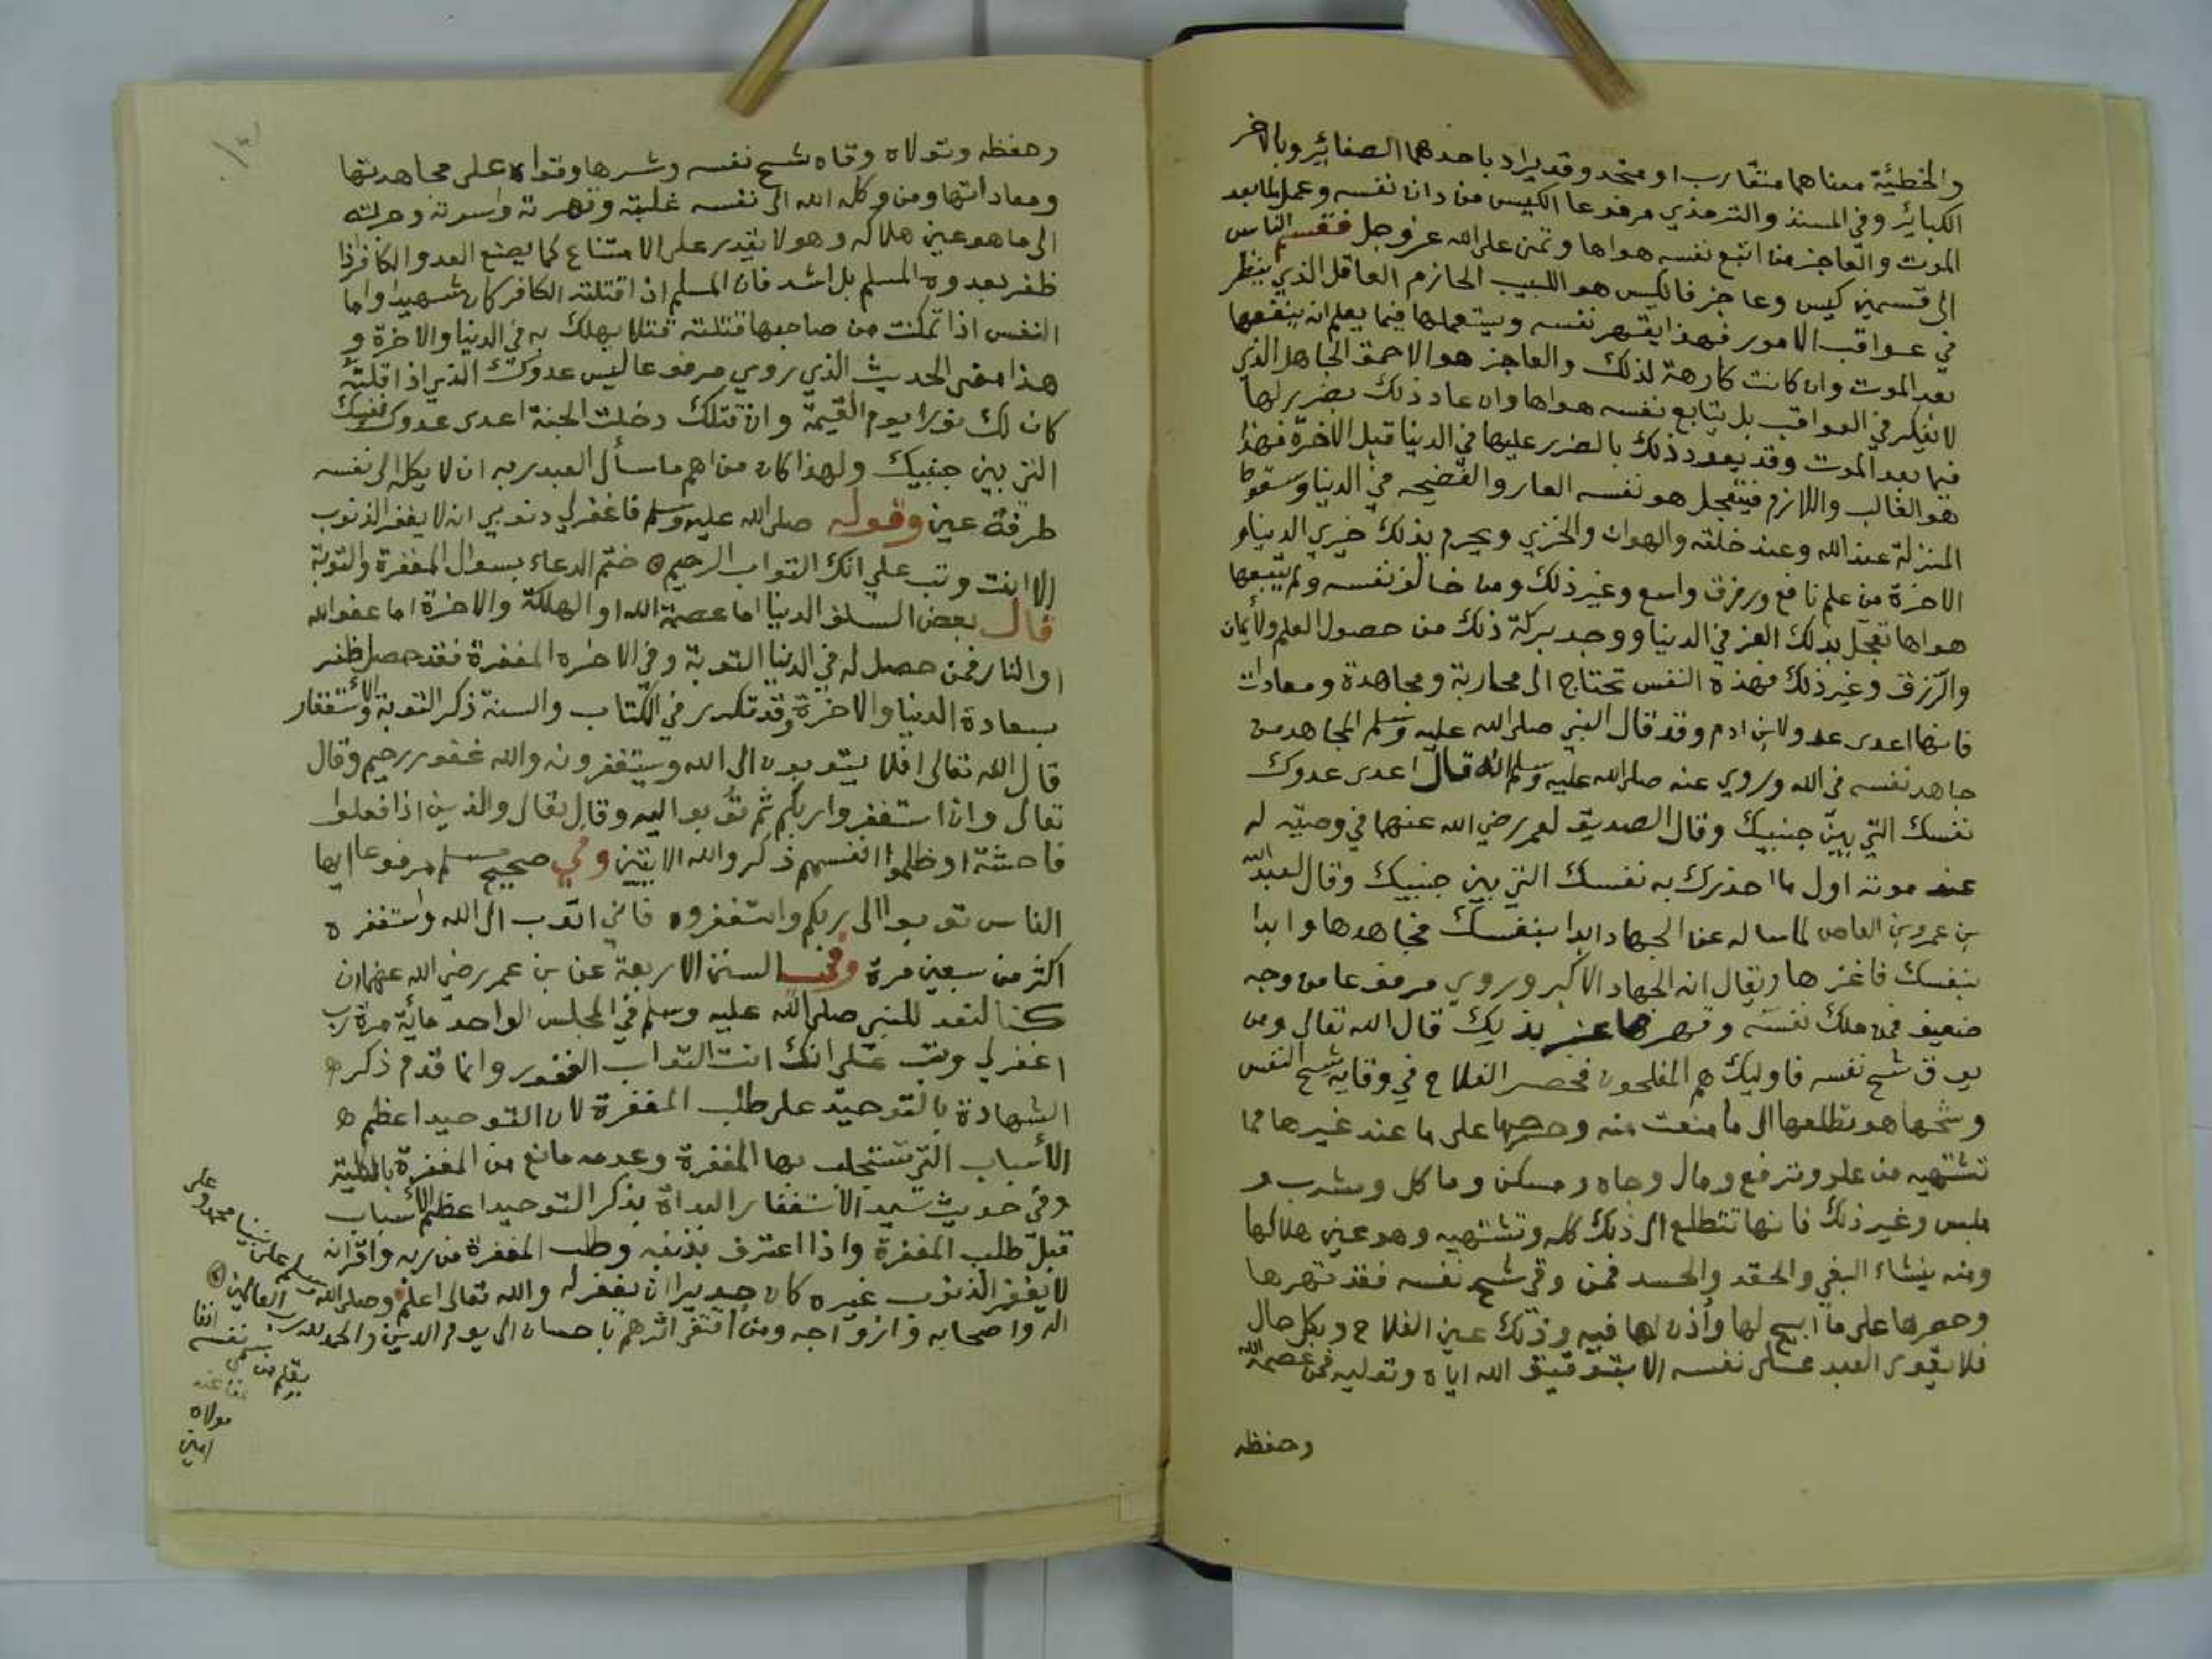 والخطيئة معناهما متقارب او متحد وقد يراد باحدهما الصغائر وبالاخر
الكبائر وفي المسند والترمذي مرفوعا الكيس من دان نفسه وعمل لما بعد
الموت والعاجز من اتبع نفسه هواها وتمنى على الله عز وجل فقسم الناس
الى قسمين كيس وعاجز فالكيس هو اللبيب الحازم العاقل الذي ينظر
في عواقب الامور فهذا يقهر نفسه ويستعملها فيما يعلم انه ينفعها
بعد الموت وان كانت كارهة لذلك والعاجز هو الاحمق الجاهل الذي
لا يفكر في العواقب بل يتابع نفسه هواها وان عاد ذلك بضرر لها
فيما بعد الموت وقد يعود ذلك بالضرر عليها في الدنيا قبل الاخرة فهذا
هو الغالب واللازم فيتعجل هو نفسه العار والفضيحه في الدنيا وسقوط
المنزلة عند الله وعند خلقه والهوان والخزي ويحرم بذلك خيري الدنيا و
الاخرة من علم نافع ورزق واسع وغير ذلك ومن خالف نفسه ولم يتبعها
هواها تعجل بذلك العز في الدنيا ووجد بركة ذلك من حصول العلم والأيمان
والرزق وغير ذلك فهذه النفس تحتاج الى محاربة ومجاهدة ومعادات
فانها اعدى عدو لابن ادم وقد قال النبي صلى الله عليه وسلم المجاهد من
جاهد نفسه في الله وروي عنه صلى الله عليه وسلم انه قال اعدى عدوك
نفسك التي بين جنبيك وقال الصديق لعمر رضي الله عنهما في وصيته له
عند موته اول ما احذرك به نفسك التي بين جنبيك وقال لعبد الله
بن عمرو بن العاص لما ساله عن الجهاد ابدا بنفسك فجاهدها وابدا
بنفسك فاغزها ويقال انه الجهاد الاكبر وروي مرفوعا من وجه
ضعيف فمن ملك نفسه وقهرها عز بذيك قال الله تعالى ومن
يوق شح نفسه فاوليك هم المفلحون فحصر الفلاح في وقاية شح النفس
وشحها هو تطلعها الى ما منعت منه وحرصها على ما عند غيرها مما
تشتهيه من علو وترفع ومال وجاه ومسكن وماكل ومشرب و
ملبس وغير ذلك فانها تتطلع الى ذلك كله وتشتهيه وهو عين هلاكها
ومنه ينشاء البغي والحقد والحسد فمن وقي شح نفسه فقد قهرها
وحصرها على ما ابيح لها وأذن لها فيه وذلك عين الفلاح وبكل حال
فلا يقوى العبد على نفسه الا بتوفيق الله اياه وتوليه فمن عصمه الله
وحفظه
وحفظه وتولاه وقاه شح نفسه وشرها وقواه على مجاهدتها
ومعاداتها ومن وكله الله الى نفسه غلبته وقهرته واسرته وجرته
الى ما هو عين هلاكه وهو لا يقدر على الامتناع كما يصنع العدو الكافر اذا
ظفر بعدوه المسلم بل اشد فان المسلم اذا قتلته الكافر كان شهيدا واما
النفس اذا تمكنت من صاحبها قتلته قتلا يهلك به في الدنيا والاخرة و
هذا معنى الحديث الذي روي مرفوعا ليس عدوك الذي اذا قتلته
كان لك نورا يوم القيمة وان قتلك دخلت الجنة اعدى عدوك نفسك
التي بين جنبيك ولهذا كان من اهم ما سأل العبد ربه ان لا يكله الى نفسه
طرفة عين وقوله صلى الله عليه وسلم فاغفر لي ذنوبي انه لا يغفر الذنوب
الا انت وتب علي انك التواب الرحيم ختم الدعاء بسوال المغفرة والتوبة
قال بعض السلف الدنيا اما عصمة الله او الهلكة والاخرة اما عفو الله
او النار فمن حصل له في الدنيا التوبة وفي الاخره المغفرة فقد حصل ظفر
بسعادة الدنيا والاخرة وقد تكرر في الكتاب والسنة ذكر التوبة والأستغفار
قال الله تعالى افلا يتوبون الى الله ويستغفرونه والله غفور رحيم وقال
تعالى وان استغفروا ربكم ثم توبوا اليه وقال تعالى والذين اذا فعلوا
فاحشة او ظلموا انفسهم ذكروا الله الايتين وفي صحيح مسلم مرفوعا ايها
الناس توبوا الى ربكم واستغفروه فاني اتوب الى الله واستغفره
اكثر من سبعين مرة وفي السنن الاربعة عن بن عمر رضي الله عنهما ان
كنا لنعد للنبي صلى الله عليه وسلم في المجلس الواحد مائة مرة رب
اغفر لي وتب علي انك انت التواب الغفور وانما قدم ذكر
الشهادة بالتوحيد على طلب المغفرة لان التوحيد اعظم
الأسباب التي تستجلب بها المغفرة وعدمه مانع من المغفرة بالكلية
وفي حديث سيد الاستغفار البداة بذكر التوحيد اعظم الأسباب
قبل طلب المغفرة واذا اعترف بذنبه وطلب المغفرة من ربه واقر انه
لا يغفر الذنوب غيره كان جديرا ان يغفر له والله تعالى اعلم وصلى الله وسلم على نبينا محمد وعلى
اله واصحابه وازواجه ومن اقتفى اثرهم باحسان الى يوم الدين والحمد لله رب العالمين
بقلم من
نفسه
عفا عنه
مولاه
امين